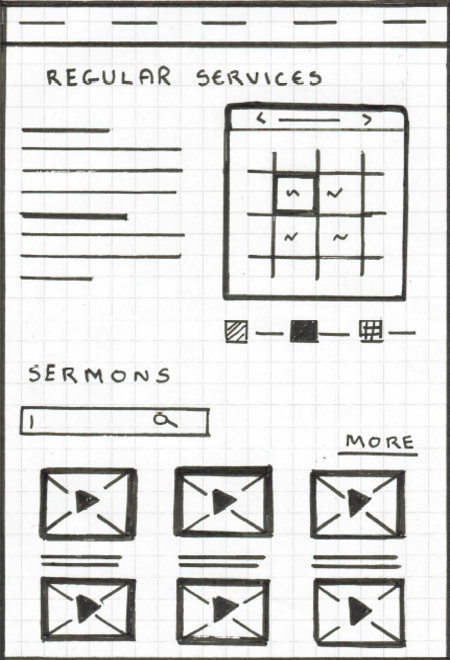 REGULAR SERVICES
SERMONS
MORE